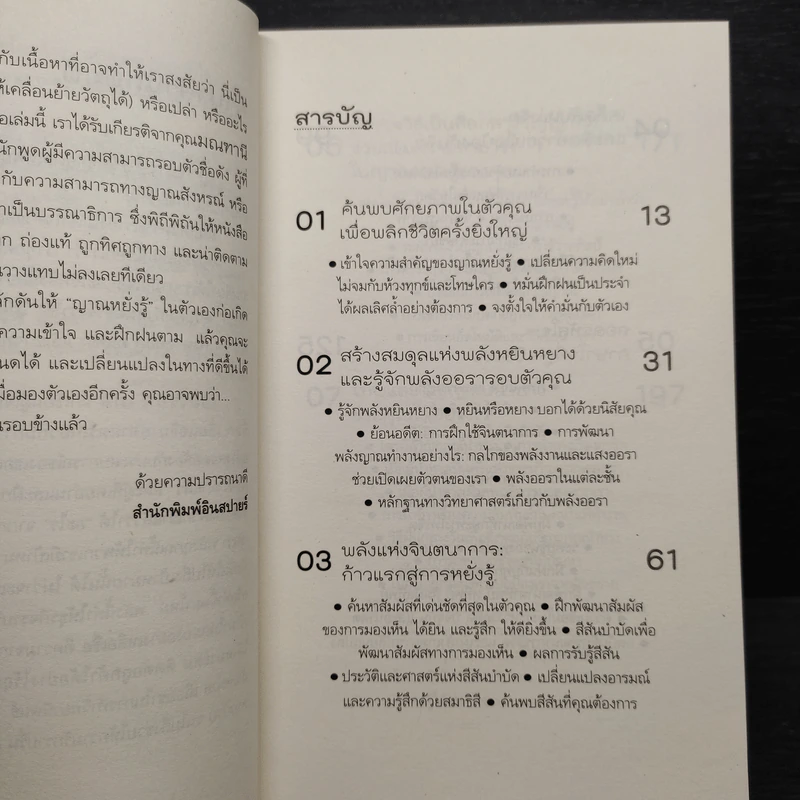 กับเนื้อหาที่อาจทำให้เราสงสัยว่า นี่เป็น
ห้เคลื่อนย้ายวัตถุได้) หรือเปล่า หรืออะไร
อเล่มนี้ เราได้รับเกียรติจากคุณมณฑานี
นักพูดผู้มีความสามารถรอบตัวชื่อดัง ผู้ที่
กับความสามารถทางญาณสังหรณ์ หรือ
าเป็นบรรณาธิการ ซึ่งพิถีพิถันให้หนังสือ
าก ถ่องแท้ ถูกทิศถูกทาง และน่าติดตาม
นวางแทบไม่ลงเลยทีเดียว
ลักดันให้ “ญาณหยั่งรู้” ในตัวเองก่อเกิด
ความเข้าใจ และฝึกฝนตาม แล้วคุณจะ
นดได้ และเปลี่ยนแปลงในทางที่ดีขึ้นได้
มื่อมองตัวเองอีกครั้ง คุณอาจพบว่า...
นรอบข้างแล้ว
ด้วยความปรารถนาดี
สำนักพิมพ์อินสปายร์
สารบัญ
01 ค้นพบศักยภาพในตัวคุณ 13
เพื่อพลิกชีวิตครั้งยิ่งใหญ่
● เข้าใจความสำคัญของญาณหยั่งรู้ ● เปลี่ยนความคิดใหม่
ไม่จมกับห้วงทุกข์และโทษใคร ● หมั่นฝึกฝนเป็นประจำ
ได้ผลเลิศล้ำอย่างต้องการ ● จงตั้งใจให้คำมั่นกับตัวเอง
02 สร้างสมดุลแห่งพลังหยินหยาง 31
และรู้จักพลังออรารอบตัวคุณ
● รู้จักพลังหยินหยาง ● หยินหรือหยาง บอกได้ด้วยนิสัยคุณ
● ย้อนอดีต: การฝึกใช้จินตนาการ ● การพัฒนา
พลังญาณทำงานอย่างไร: กลไกของพลังงานและแสงออรา
ช่วยเปิดเผยตัวตนของเรา ● พลังออราในแต่ละชั้น
● หลักฐานทางวิทยาศาสตร์เกี่ยวกับพลังออรา
03 พลังแห่งจินตนาการ: 61
ก้าวแรกสู่การหยั่งรู้
● ค้นหาสัมผัสที่เด่นชัดที่สุดในตัวคุณ ● ฝึกพัฒนาสัมผัส
ของการมองเห็น ได้ยิน และรู้สึก ให้ดียิ่งขึ้น ● สีสันบำบัดเพื่อ
พัฒนาสัมผัสทางการมองเห็น ● ผลการรับรู้สีสัน
● ประวัติและศาสตร์แห่งสีสันบำบัด ● เปลี่ยนแปลงอารมณ์
และความรู้สึกด้วยสมาธิสี ● ค้นพบสีสันที่คุณต้องการ